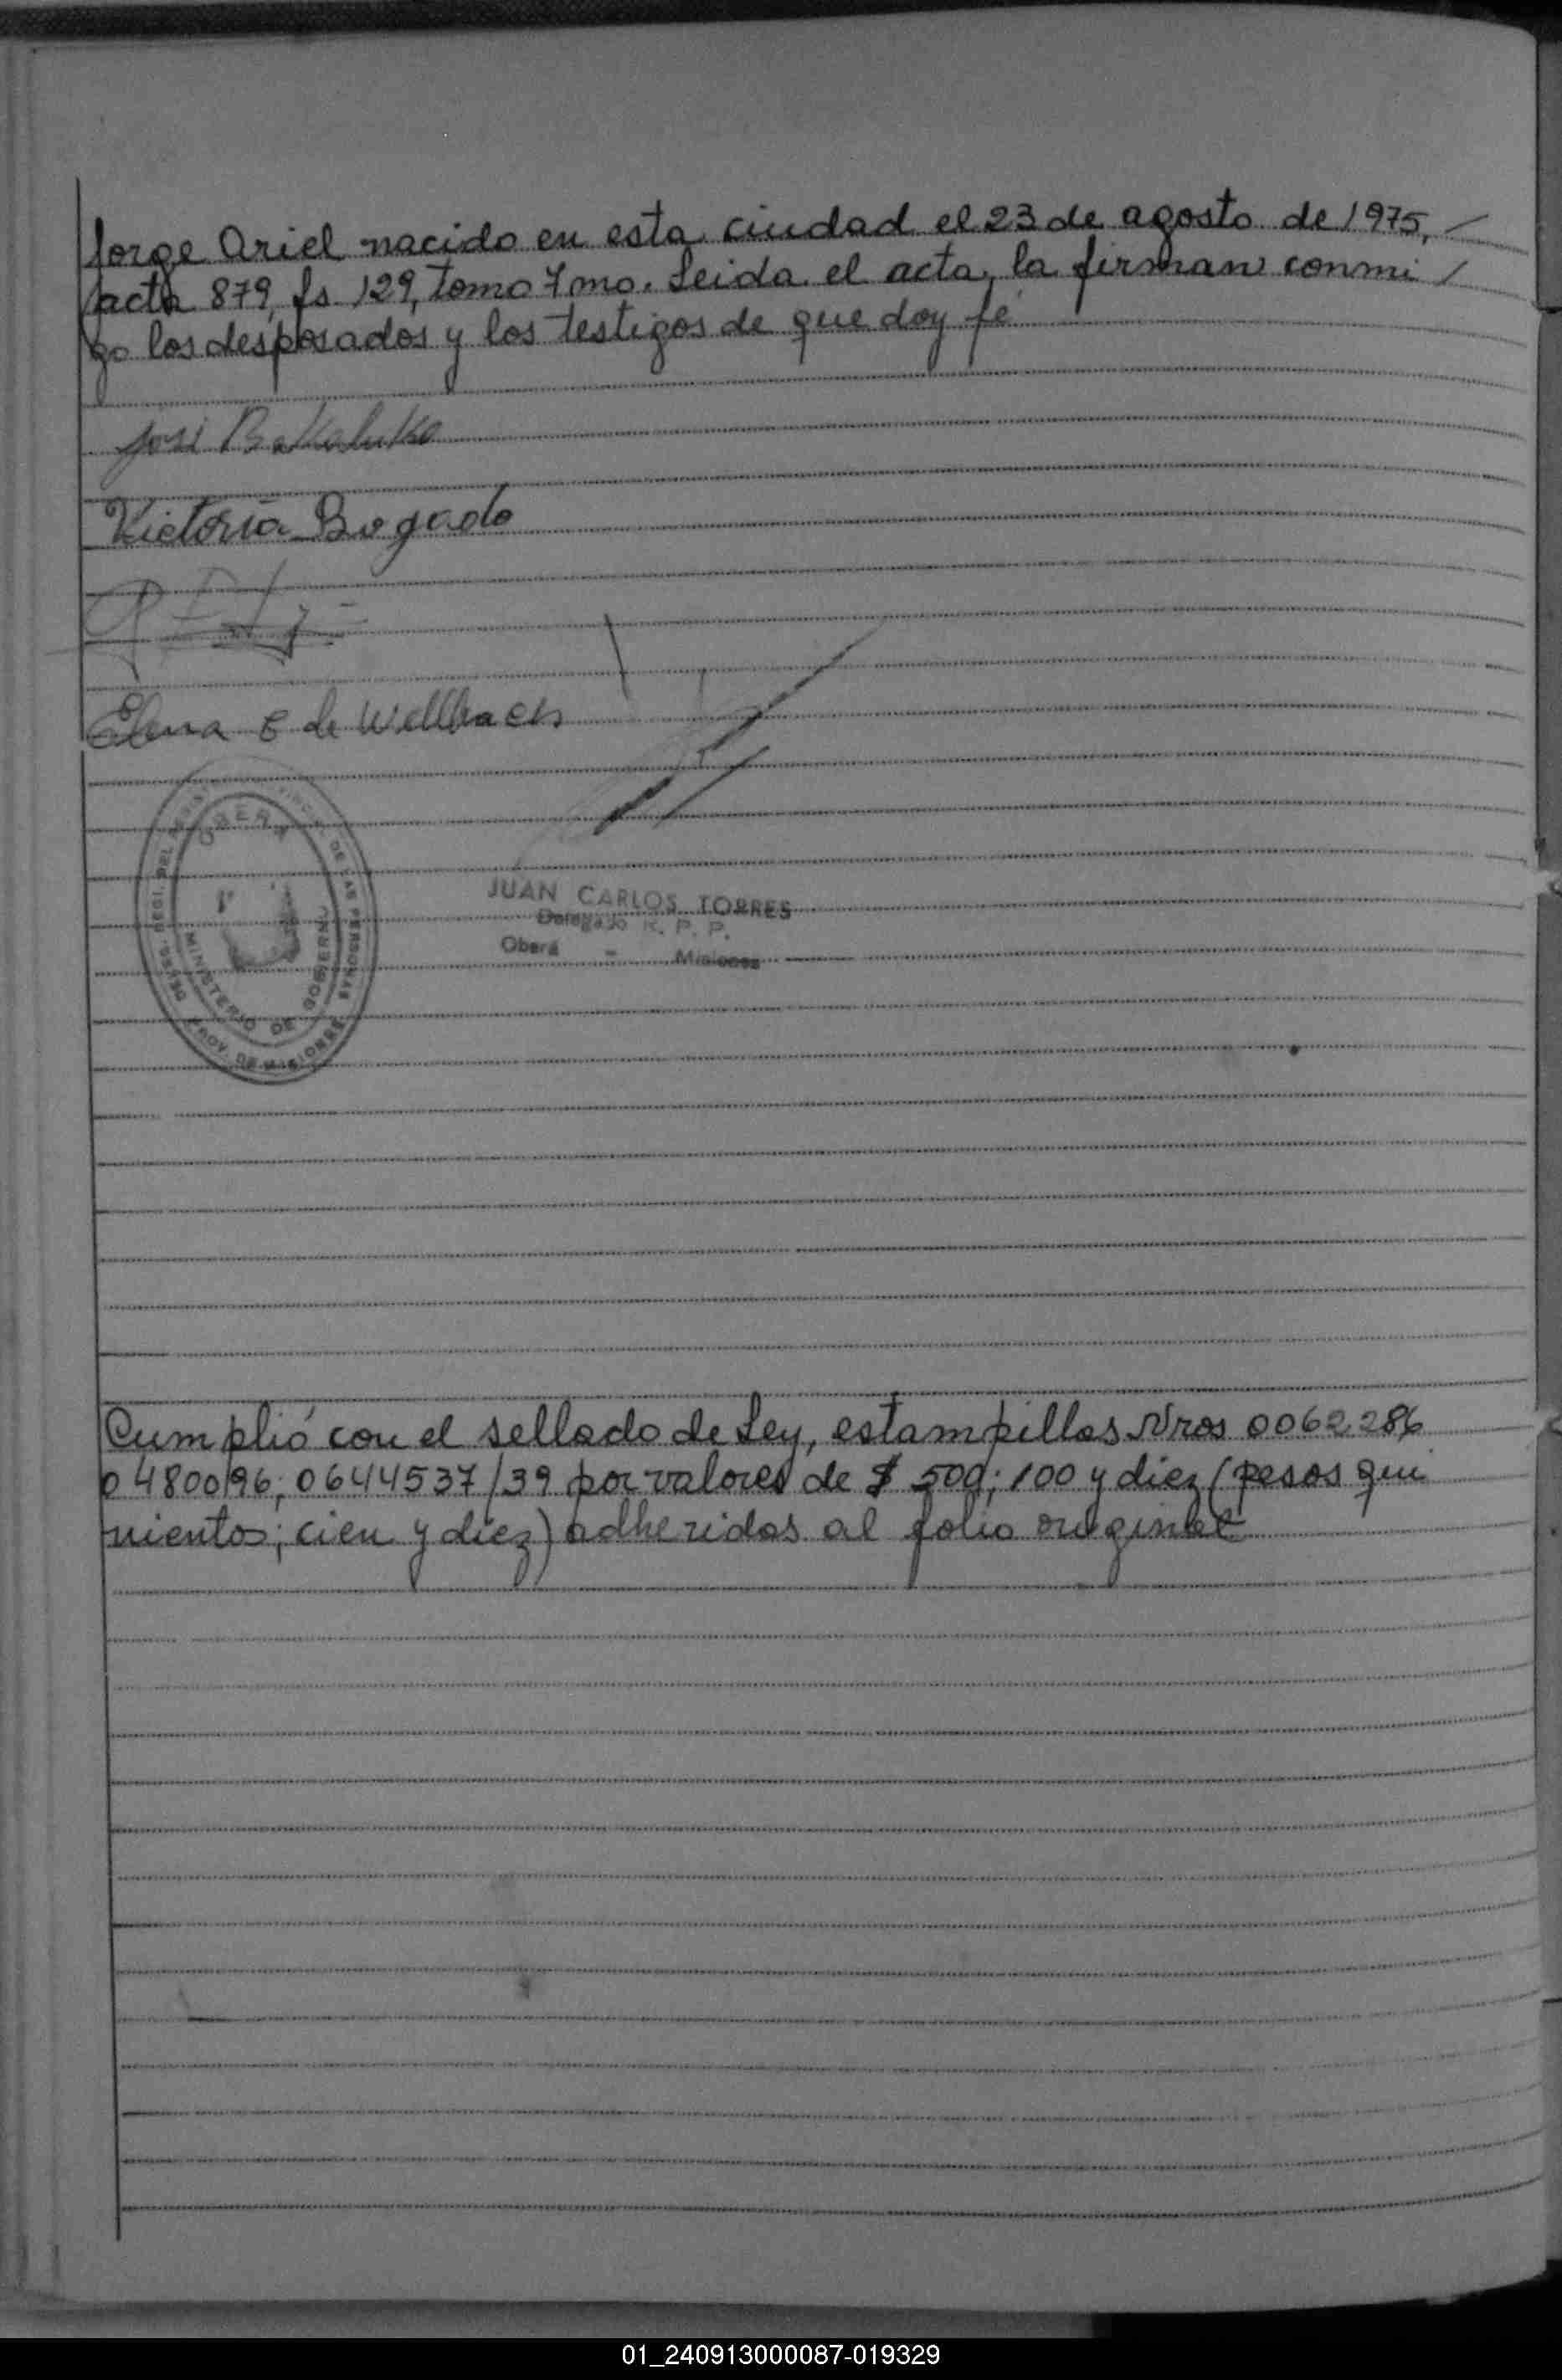 Jorge Ariel nacido en esta ciudad el 23 de agosto de 1975, /
acta 879, fs 129, tomo 7mo. Leida el acta, la firman conmi /
go los desposados y los testigos de que doy fé
José
Victoria Bogado
Elena E de Wellbach
OBERA
REGI. DEL
DE LAS PERSONAS
MINISTERIO DE GOBIERNO
PROV. DE MISIONES
JUAN CARLOS TORRES
Delegado R. P. P.
Oberá - Misiones
Cumplió con el sellado de Ley, estampillas Nros 0062286
0480096; 0644537/39 por valores de $ 500; 100 y diez (pesos qui
nientos; cien y diez) adheridas al folio original
01_240913000087-019329